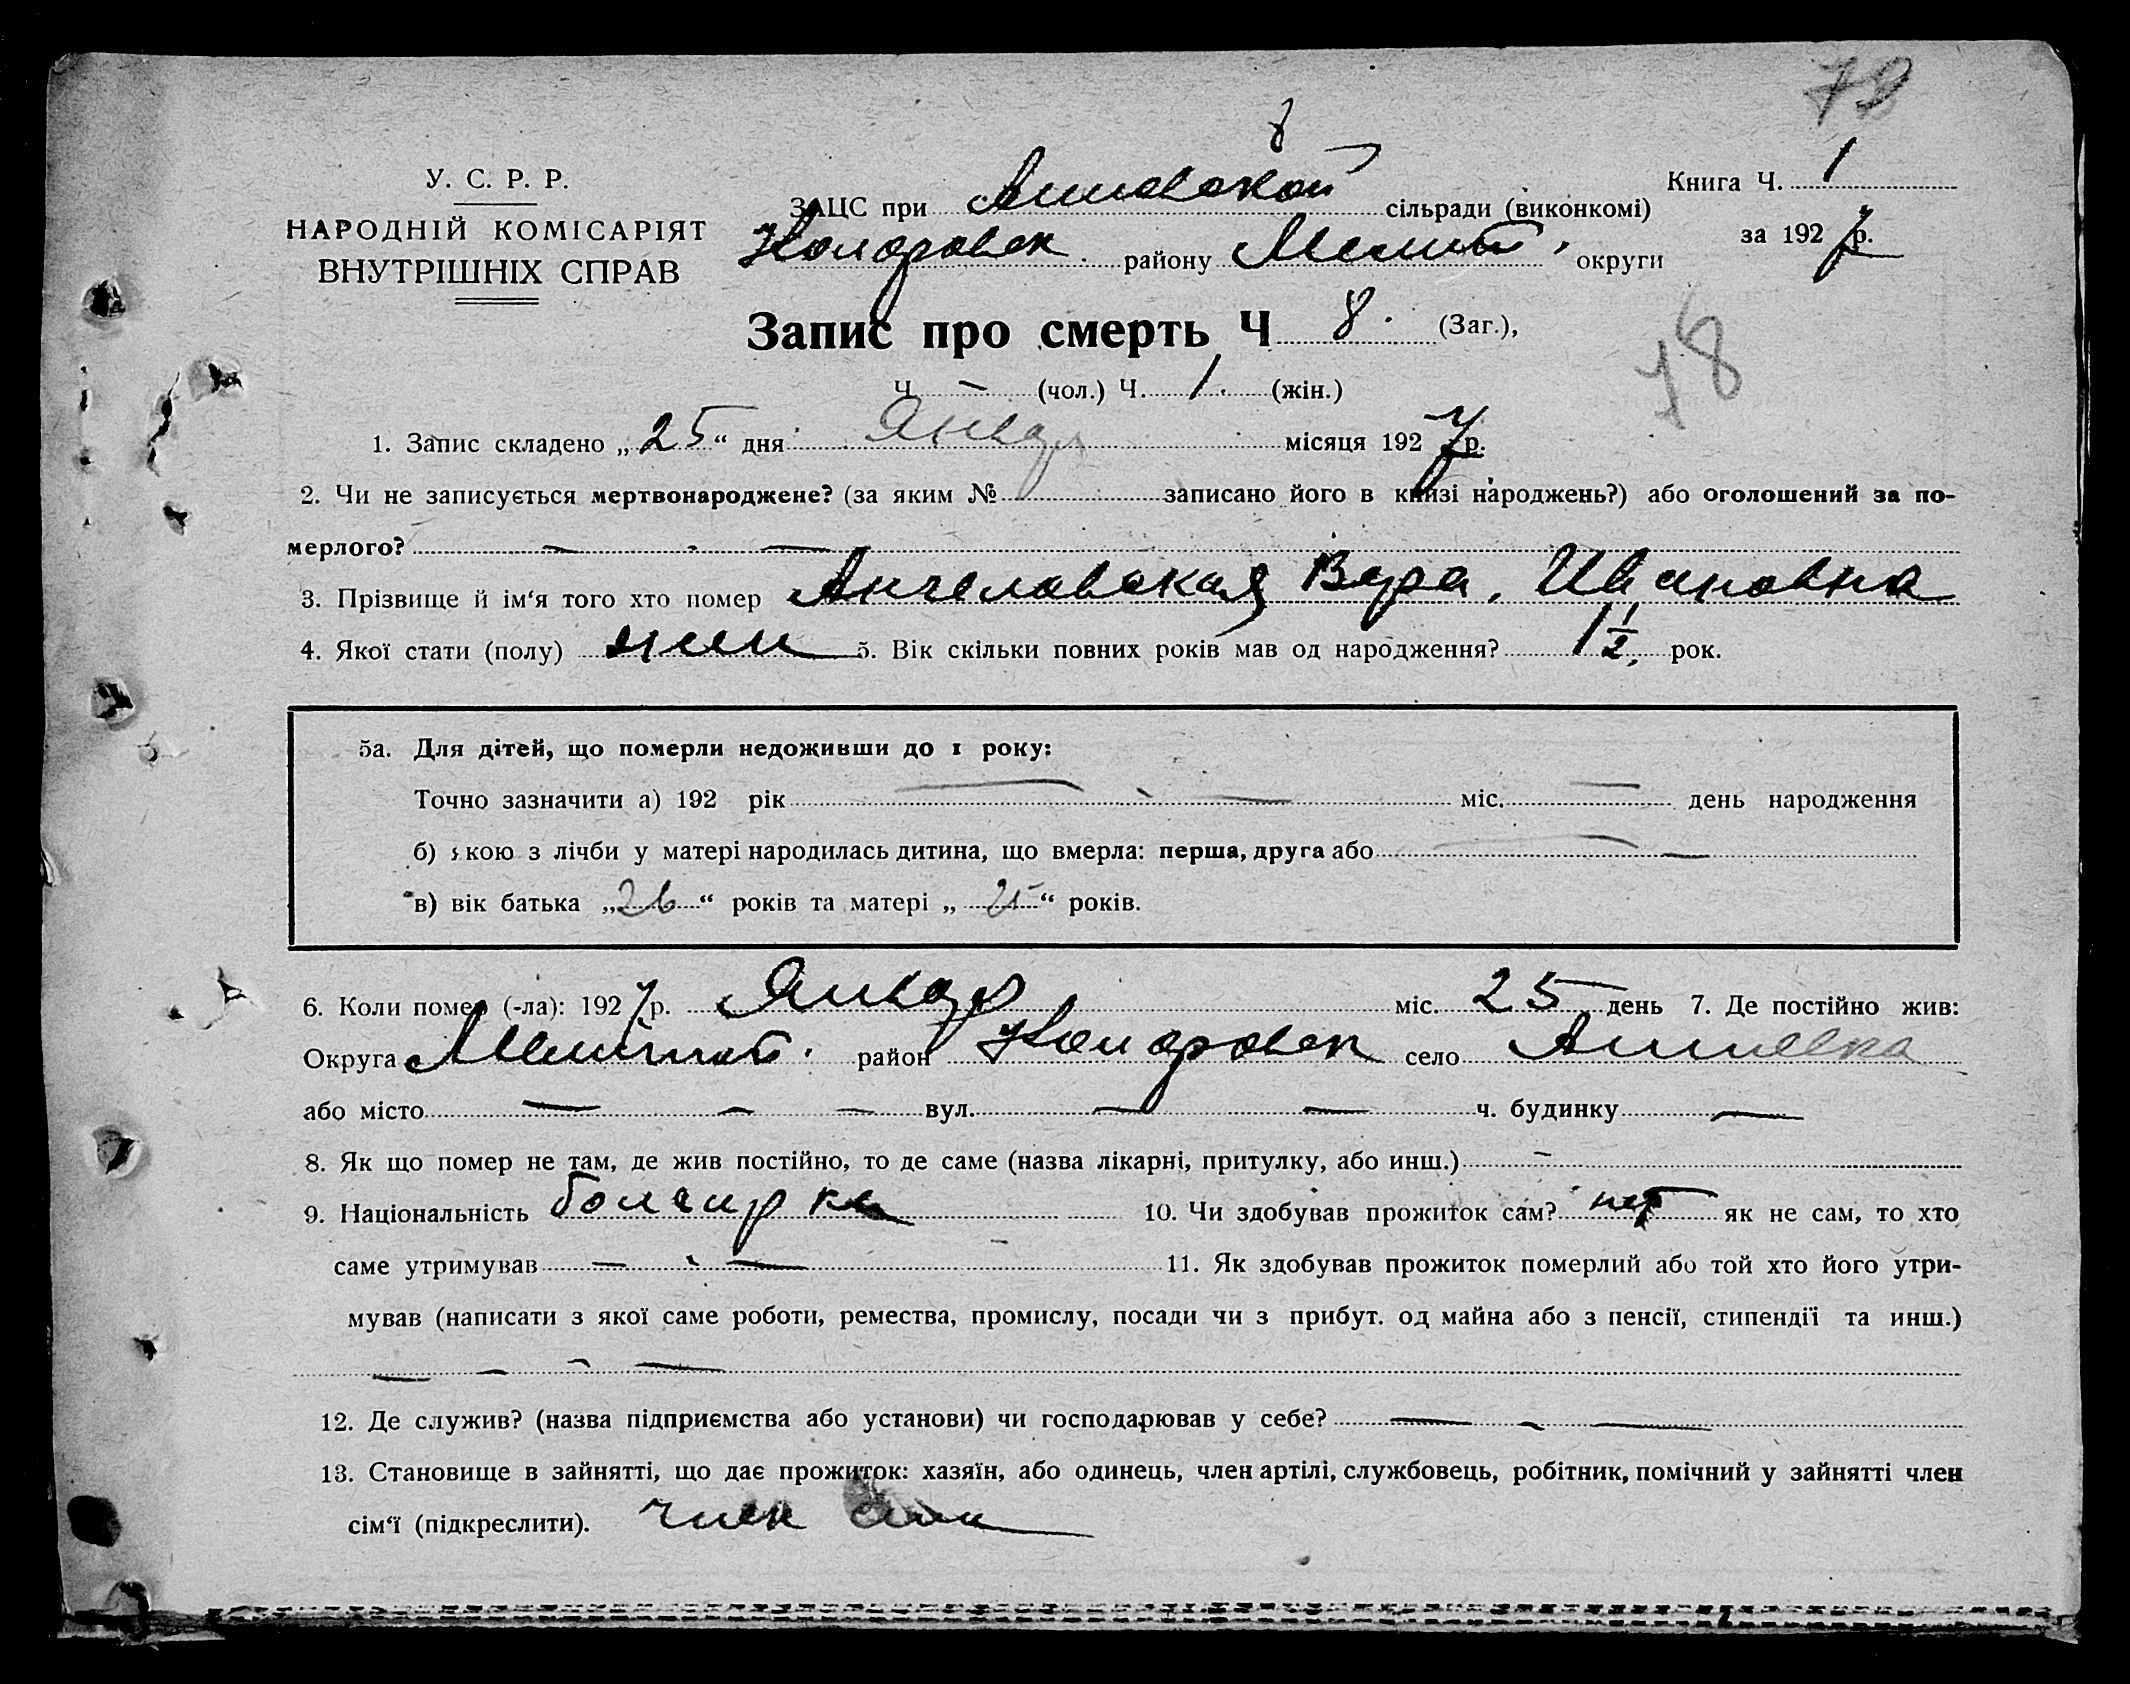 78
8
У. С. Р. Р.
НАРОДНІЙ КОМІСАРІЯТ
ВНУТРІШНІХ СПРАВ
ЗАЦС при сільради (виконкомі)
району Мелит. округи
Книга Ч. 1
за 1927 р.
Запис про смерть Ч 8. (Заг.),
78
Ч — (чол.) Ч. 1. (жін.)
1. Запис складено „25“ дня Январ місяця 1927 р.
2. Чи не записується мертвонароджене? (за яким № записано його в книзі народжень?) або оголошений за по-
мерлого? — —
3. Прізвище й ім'я того хто помер Ангеловская Вера, Ивановна
4. Якої стати (полу) жен 5. Вік скільки повних років мав од народження? 1 1/2, рок.
5а. Для дітей, що померли недоживши до 1 року:
Точно зазначити а) 192 рік — — міс. — день народження
б) якою з лічби у матері народилась дитина, що вмерла: перша, друга або — —
в) вік батька „26“ років та матері „25“ років.
6. Коли помер (-ла): 1927 р. Январ міс. 25 день 7. Де постійно жив:
Округа Мелитоп. район село
або місто — — — вул. — — ч. будинку —
8. Як що помер не там, де жив постійно, то де саме (назва лікарні, притулку, або инш.) —
9. Національність болгарка 10. Чи здобував прожиток сам? нет як не сам, то хто
саме утримував — — 11. Як здобував прожиток померлий або той хто його утри-
мував (написати з якої саме роботи, ремества, промислу, посади чи з прибут. од майна або з пенсії, стипендії та инш.)
— — —
12. Де служив? (назва підприємства або установи) чи господарював у себе? — — —
13. Становище в зайнятті, що дає прожиток: хазяїн, або одинець, член артілі, службовець, робітник, помічний у зайнятті член
сім'ї (підкреслити). член сем